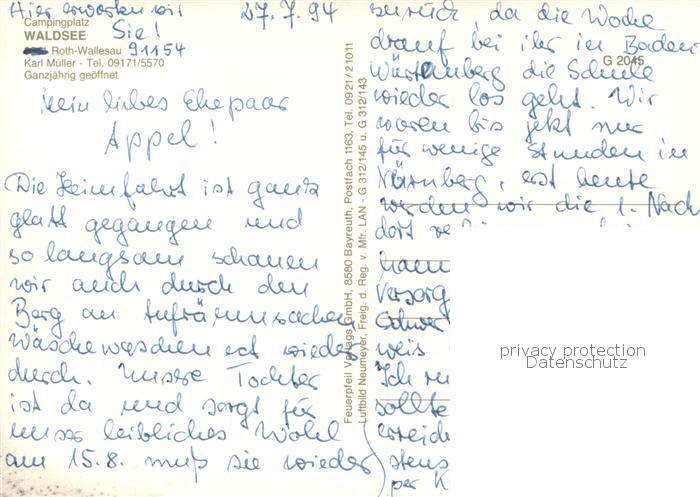 Hier erwarten wir
Sie!
27.7.94
Campingplatz
WALDSEE
Roth-Wallesau 91154
Karl Müller - Tel. 09171/5570
Ganzjährig geöffnet
liebes Ehepaar
Appel!
Die Heimfahrt ist ganz
glatt gegangen und
so langsam schauen
wir auch durch den
Berg an Aufräumsachen
wäschewaschen ect wieder
durch. Unsre Tochter
ist da und sorgt für
unser leibliches Wohl
am 15.8. muß sie wieder
Feuerpfeil Verlags GmbH, 8580 Bayreuth, Postfach 1163, Tel. 0921/21011
Luftbild Neumeyer, Freig. d. Reg. v. Mfr. LAN - G 312/145 u. G 312/143
zurück, da die Woche
drauf bei ihr in Baden
Würtenberg die Schule
G 2045
wieder los geht. Wir
waren bis jetzt nur
für wenige Stunden in
Nürnberg, erst heute
werden wir die 1. Nach
dort
Versorg
schwer
weis
Ich
sollte
erreich
stens
per K
privacy protection
Datenschutz